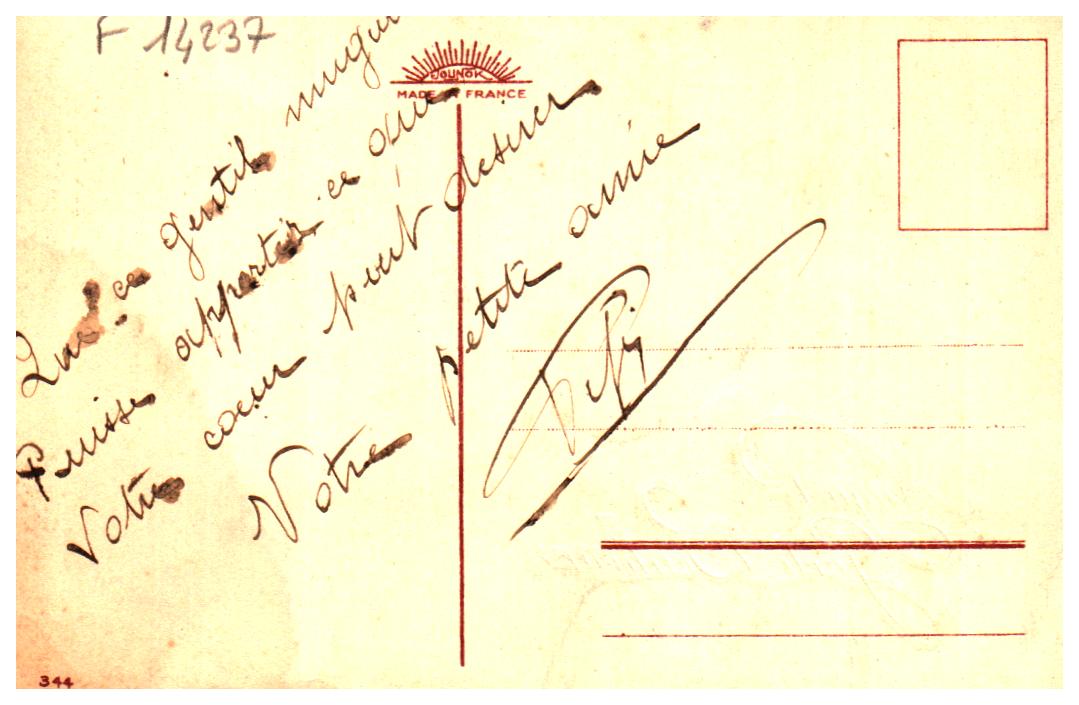 F 14237
JOUNOK
MADE IN FRANCE
Que ce gentil muguet
Puisse apporter ce que
Votre cœur peut désirer
Votre petite amie
Fify
344